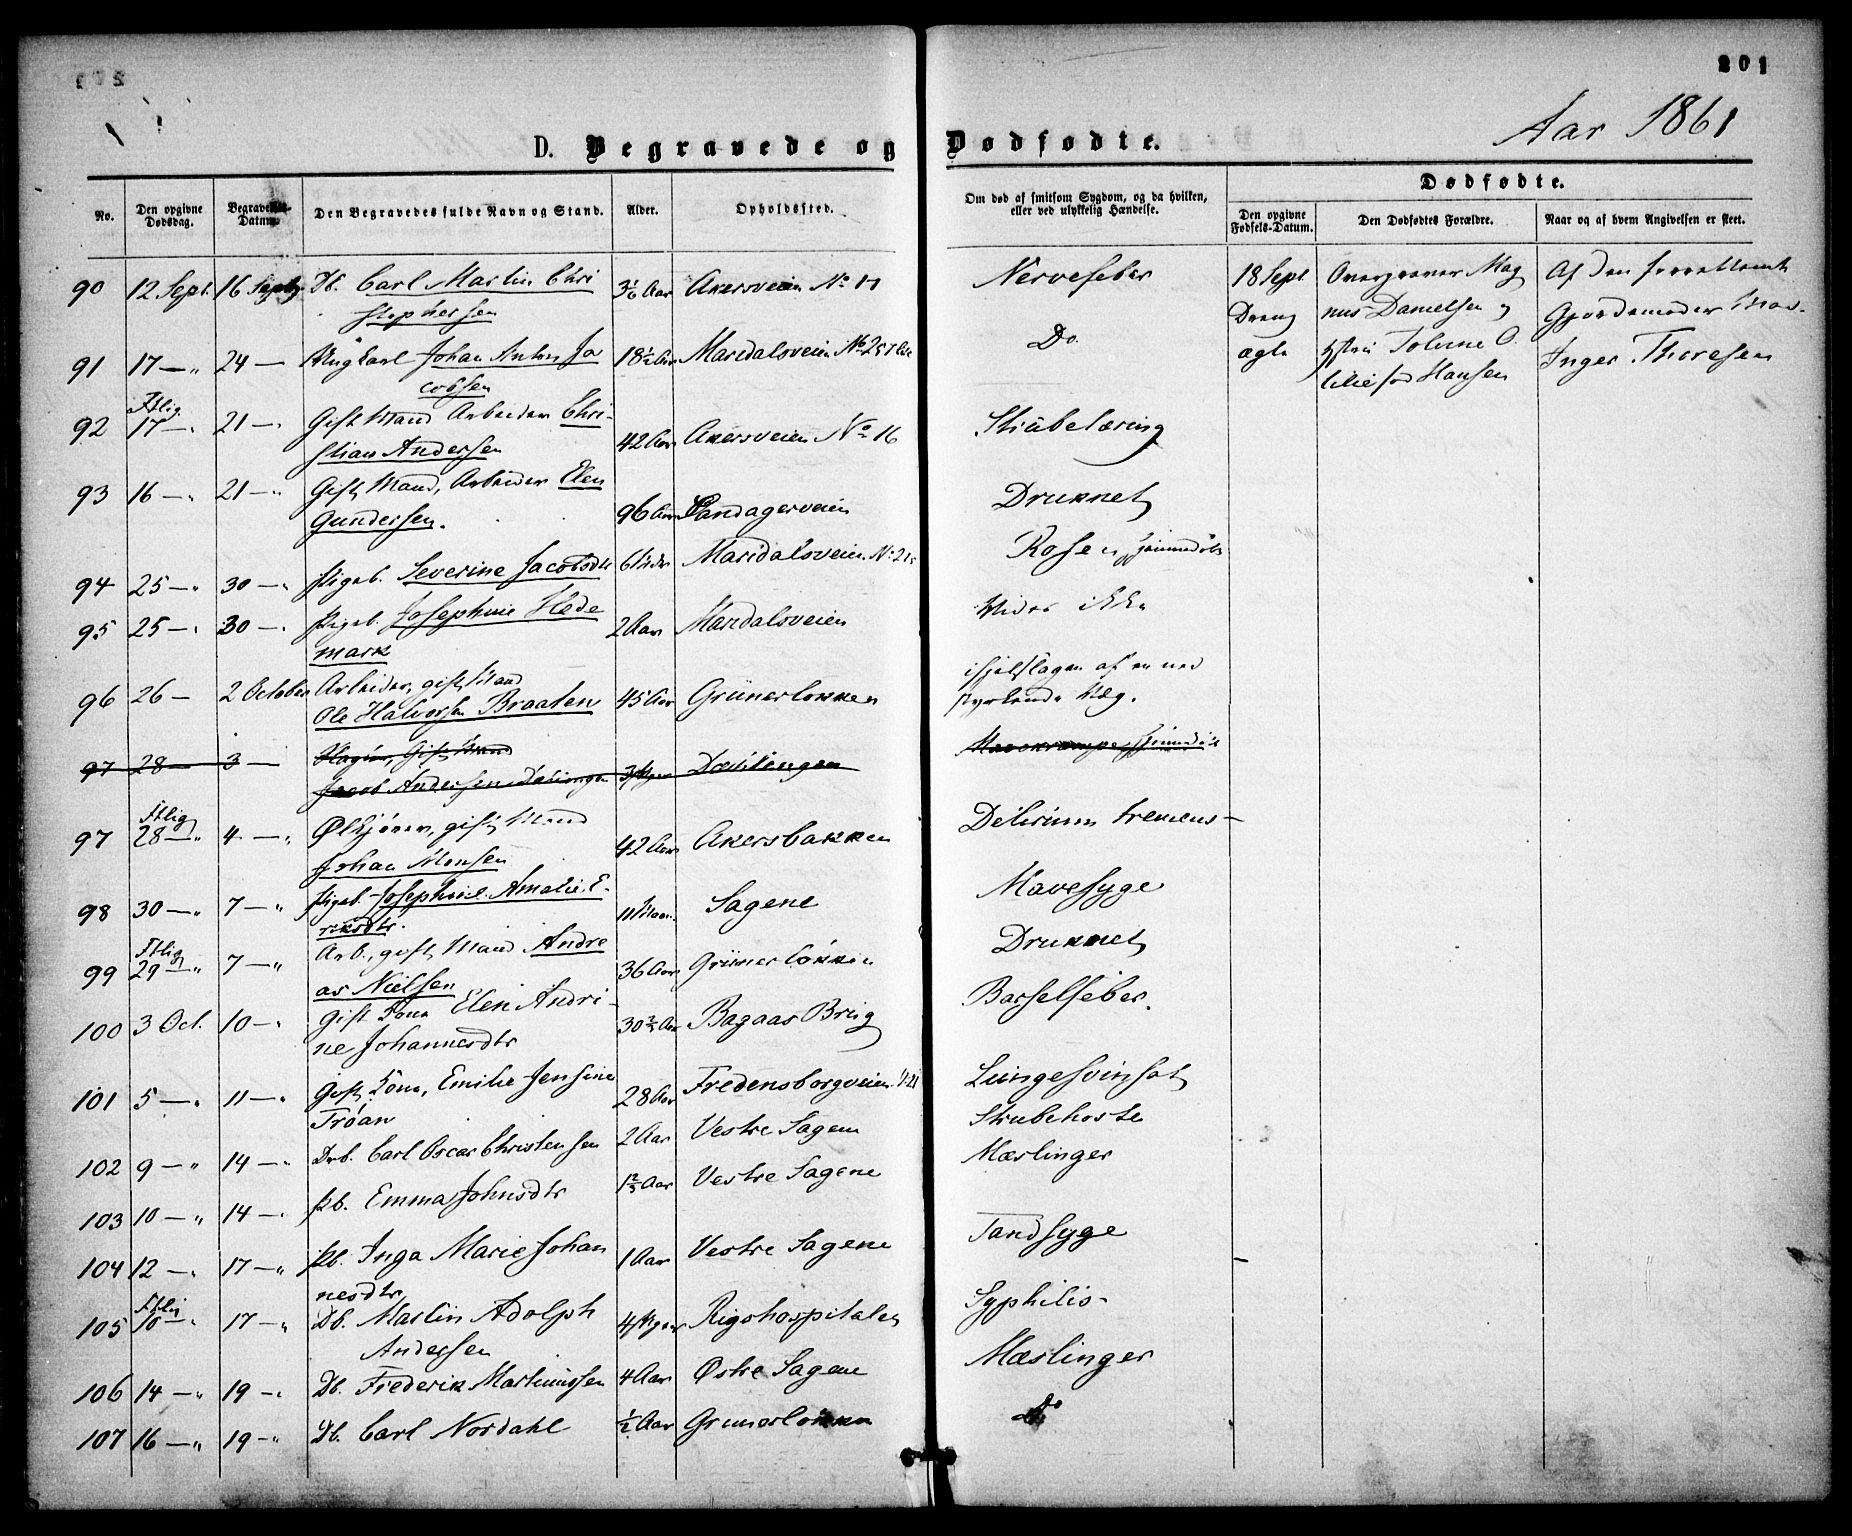 201
Aar 1861
D. Begravede og Dødfødte.
No.
Den opgivne Dødsdag.
Begravelses-Datum.
Den Begravedes fulde Navn og Stand.
Alder.
Opholdssted.
Om død af smitsom Sygdom, og da hvilken, eller ved ulykkelig Hændelse.
Dødfødte.
Den opgivne Fødsels-Datum.
Den Dødfødtes Forældre.
Naar og af hvem Angivelsen er skeet.
90 12 Sept. 16 Septb. Db. Carl Martin Chri 3 1/6 Aar Akersveien No 11 Nervefeber 18 Sept
stophersen
Mag
Af den
Dreng
nus Danielsen og
Gjordemoder
91 17 — 24 — Ungkarl Johan Anton Ja 18 1/2 Aar Maridalsveien Do.
cobsen
ægte
Hansen
Inger Thoresen
92 17 — 21 — Gift Mand Arbeider Chri- 42 Aar Akersveien No 16
stian Andersen
93 16 — 21 — Gift Mand, Arbeider Elen 96 Aar Sandagerveien Druknet
Gundersen.
94 25 — 30 — Pigeb. Severine Jacobsdtr 6 Uger Maridalsveien Rosen
95 25 — 30 — Pigeb. Josephine Hede 2 Aar Maridalsveien Vides ikke
mark
96 26 — 2 October Arbeider, gift Mand 45 Aar Grünerløkken ihjelslagen af en ned
Ole Halvorsen Braaten
styrtende Væg.
97 28 — 3 — Gift Mand
Jacob Andersen Dælengen
97 28 — 4 — Ølkjører, gift Mand 42 Aar Akersbakken Delirium tremens
Johan Monsen
98 30 — 7 — Pigeb. Josephine Amalie E- 11 Maan. Sagene Mavesyge
riksdtr.
99 29 — 7 — Arb., gift Mand Andre 36 Aar Grünerløkken Druknet
as Nielsen
100 3 Oct. 10 — Gift Kone Elen Andri- 30 2/3 Aar Bagaas Brug Barselfeber.
ne Johannesdtr
101 5 — 11 — Gift Kone, Emilie Jensine 28 Aar Fredensborgveien Lungesvindsot
Trøan
102 9 — 14 — Drb. Carl Oscar Christensen 2 Aar Vestre Sagene Strubehoste
103 10 — 14 — Pb. Emma Johnsdtr 1 2/3 Aar Vestre Sagene Mæslinger
104 12 — 17 — Pb. Inga Marie Johan 1 Aar Vestre Sagene Tandsyge
nesdtr
105 10 — 17 — Db. Martin Adolph 4 Uger Rigshospitalet Syphilis
Andersen
106 14 — 19 — Db. Frederik Martinussen 4 Aar Østre Sagene Mæslinger
107 16 — 19 — Db. Carl Nordahl 1/2 Aar Grünerløkken Do